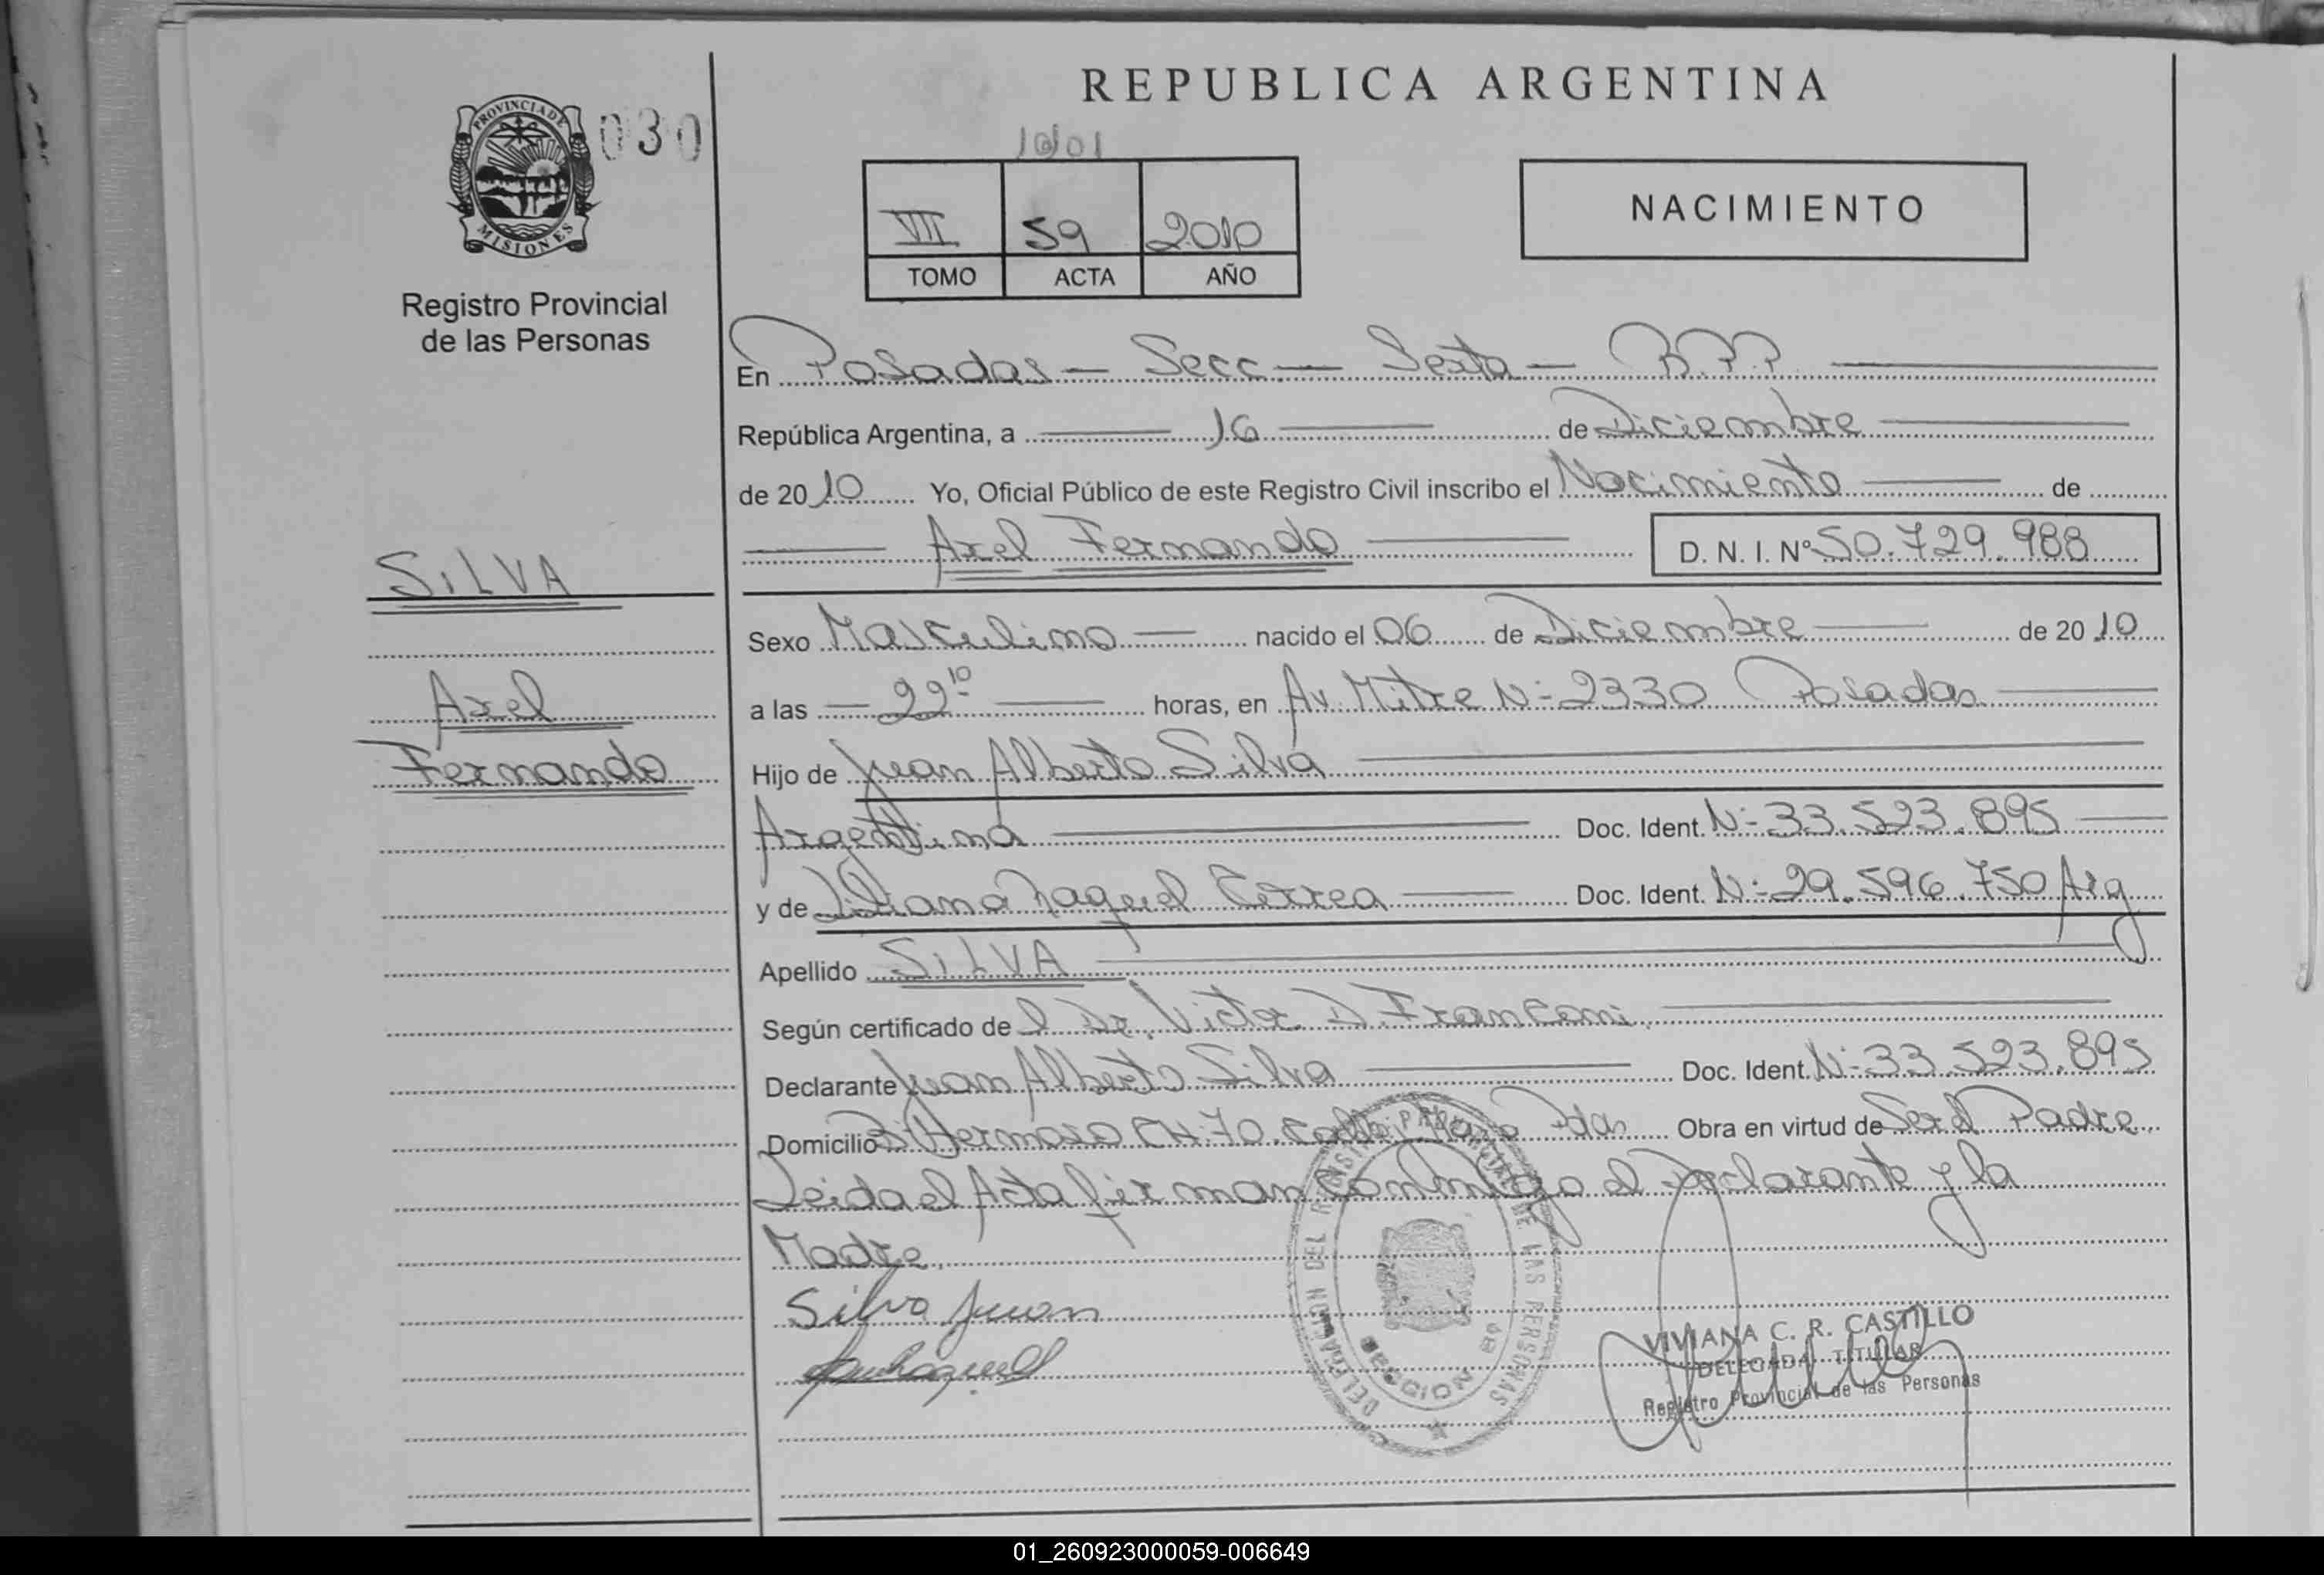 REPUBLICA ARGENTINA
PROVINCIA DE
MISIONES
030
Registro Provincial
de las Personas
VII 59 2010
TOMO ACTA AÑO
NACIMIENTO
En Posadas — Secc — Sexta — R.P.P.
República Argentina, a 16 de Diciembre
de 2010 Yo, Oficial Público de este Registro Civil inscribo el Nacimiento de
Axel Fernando D. N. I. Nº 50.729.988
SILVA
Axel
Fernando
Sexo Masculino nacido el 06 de Diciembre de 2010
a las 22 10 horas, en Av. Mitre Nº 2330 Posadas
Hijo de Juan Alberto Silva
Argentina Doc. Ident. Nº 33.523.895
y de Liliana Raquel Correa Doc. Ident. Nº 29.596.750 Arg
Apellido SILVA
Según certificado del Dr. Victor D. Franconi
Declarante Juan Alberto Silva Doc. Ident. Nº 33.523.895
Domicilio Bº Hermoso CH 70 Pdas Obra en virtud de Ser el Padre
Leida el Acta firman conmigo el Declarante y la
Madre.
Silva Juan
DELEGACION DEL REGISTRO PROVINCIAL DE LAS PERSONAS
SECCION 6ª
VIVIANA C. R. CASTILLO
DELEGADA TITULAR
Registro Provincial de las Personas
01_260923000059-006649